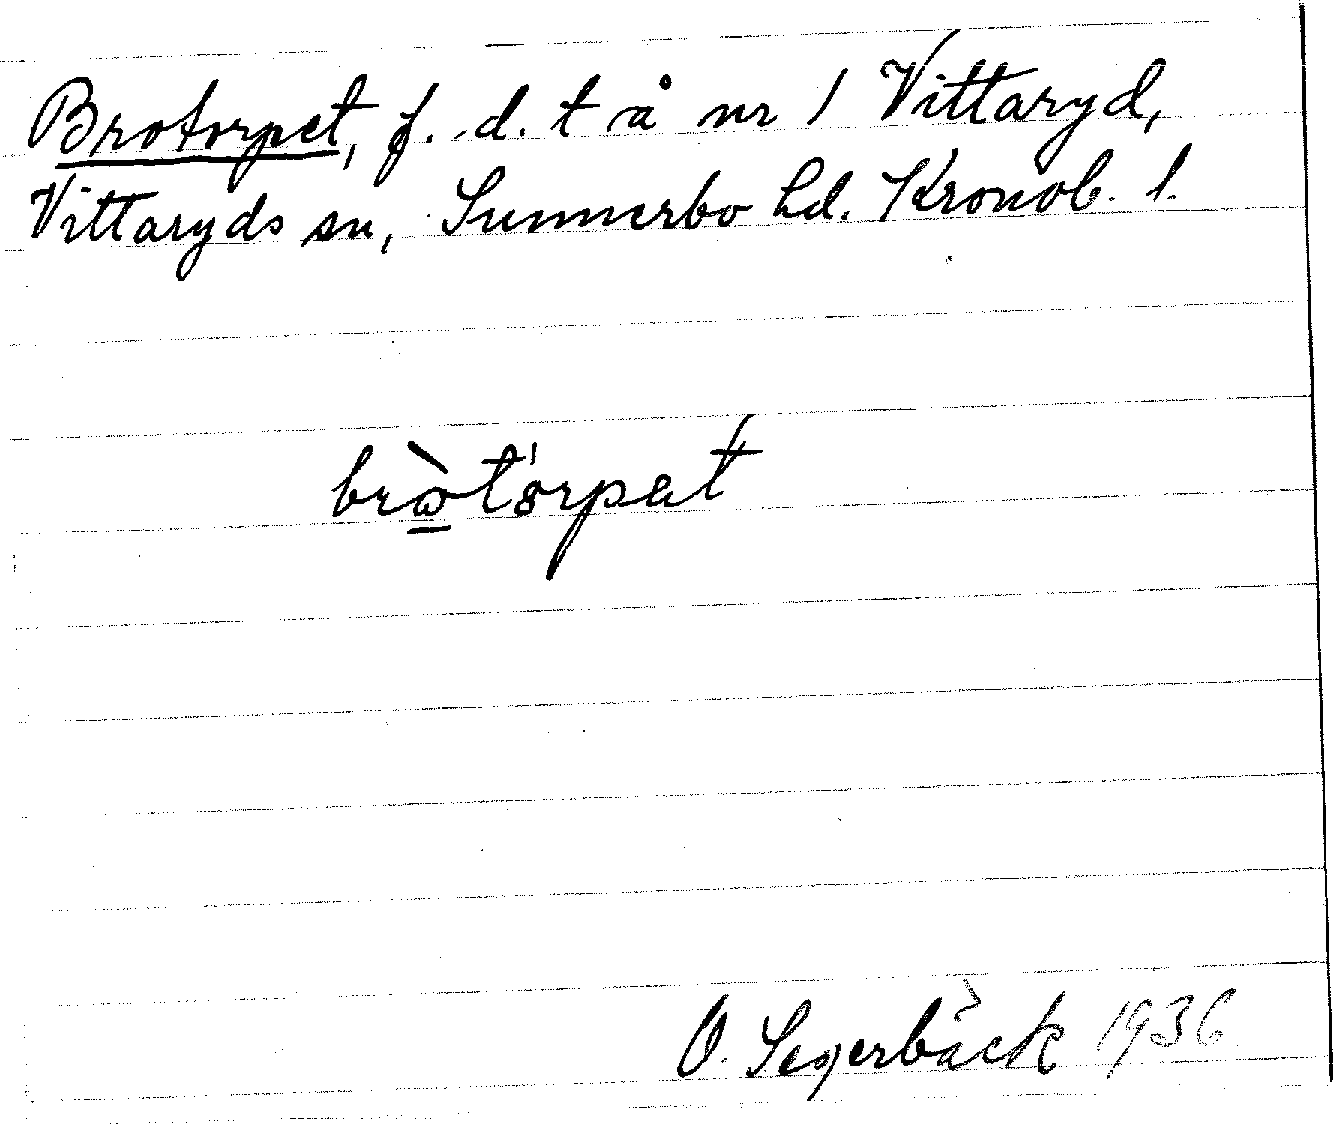 Brotorpet, f. d. t å nr 1 Vittaryd,
Vittaryds sn, Sunnerbo hd. Kronob. l.
O. Segerbäck 1936